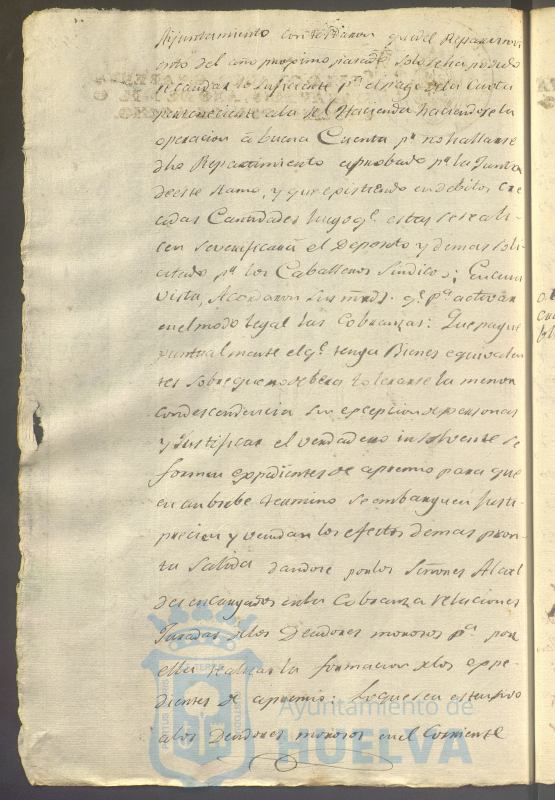 Ajuntamiento contextaron que del Repartimi
ento del año proximo pasado solo se ha podido
recaudar lo suficiente pª el pago de la Cuota
perteneciente a la Rl Hacienda haciendose la
operacion á buena Cuenta pr no hallarse
dho Repartimiento aprobado pr la Junta
de este Ramo, y que existiendo en debitos cre
cidas Cantidades luego qe estas se reali-
cen se verificará el Deposito y demas soli-
citado pr los Caballeros Sindicos; En cuia
vista, Acordaron sus mrds. qe pª activar
en el modo legal las Cobranzas: Que pague
puntualmente el qe tenga Bienes equivalen
tes sobre que no deberá tolerarse la menor
condescendencia sin excepcion de personas
y Justificar el verdadero insolvente se
formen expedientes de apremio para que
en un brebe termino se embarguen justi-
precien y vendan los efectos de mas pron-
ta salida dandose por los Señores Alcal
des encargados en la Cobranza relaciones
Juradas de los Deudores morosos pª por
ella realizar la formacion de los expe-
dientes de apremio: lo que sea extensivo
a los Deudores morosos en el Corriente
Ayuntamiento de
HUELVA